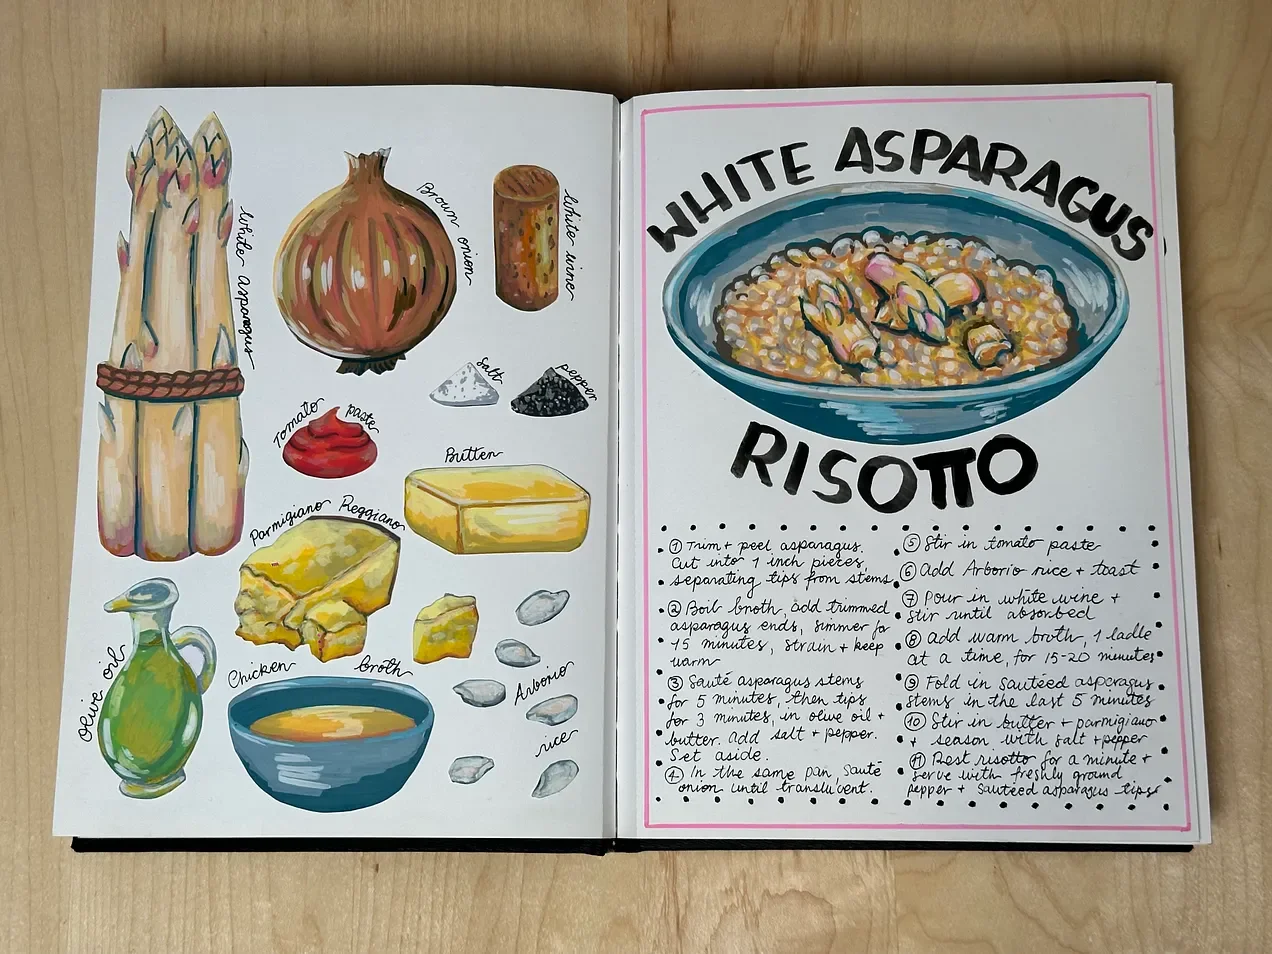 White Asparagus
Brown onion
White wine
Salt
pepper
Tomato paste
Butter
Parmigiano Reggiano
Olive oil
Chicken broth
Arborio
rice
WHITE ASPARAGUS
RISOTTO
① Trim + peel asparagus.
Cut into 1 inch pieces,
separating tips from stems
② Boil broth, add trimmed
asparagus ends, simmer for
15 minutes, strain + keep
warm
③ Sauté asparagus stems
for 5 minutes, then tips
for 3 minutes, in olive oil +
butter. Add salt + pepper.
Set aside.
④ In the same pan, sauté
onion until translucent.
⑤ Stir in tomato paste
⑥ Add Arborio rice + toast
⑦ Pour in white wine +
stir until absorbed
⑧ Add warm broth, 1 ladle
at a time, for 15-20 minutes
⑨ Fold in sautéed asparagus
stems in the last 5 minutes
⑩ Stir in butter + parmigiano
+ season with salt + pepper
⑪ Rest risotto for a minute +
serve with freshly ground
pepper + sautéed asparagus tips